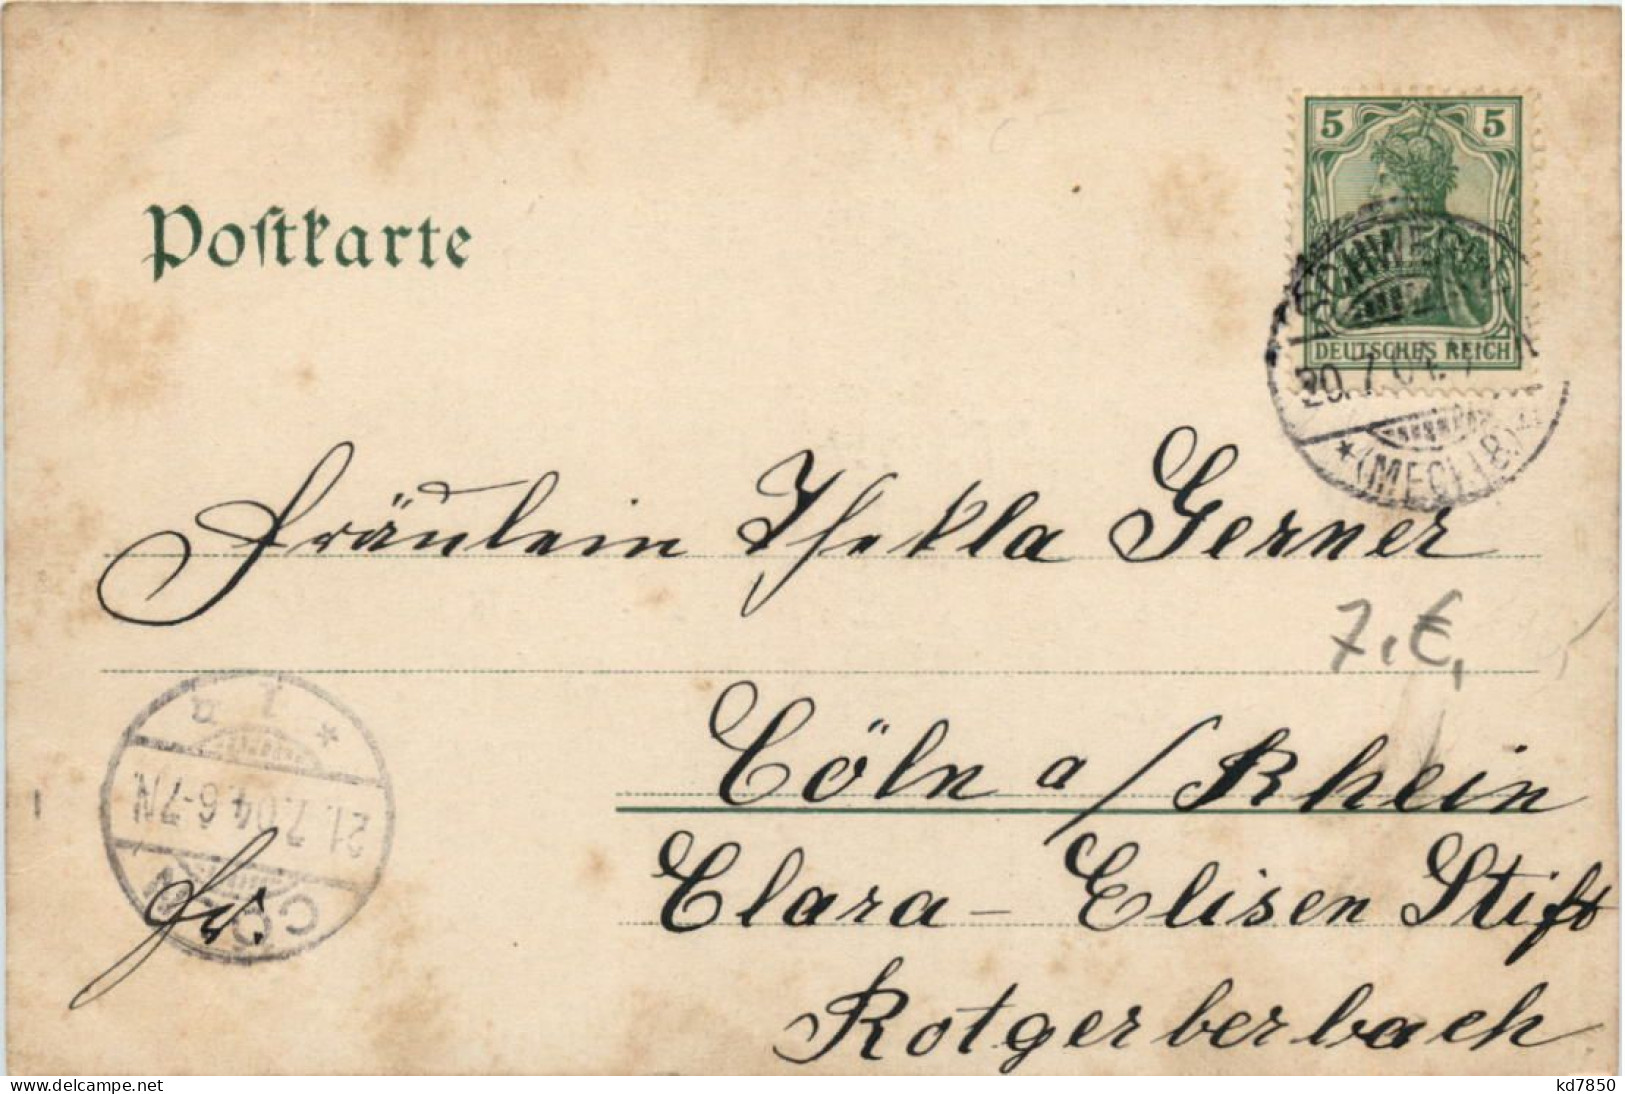 5 5
DEUTSCHES REICH
SCHWERIN
20.7.04.7
* (MECKLB) *
Postkarte
Fräulein Thekla Gerner
7,€,
Cöln a/Rhein
Clara-Elisen Stift
Rotgerberbach
fr.
* 1 a
21.7.04.6-7N.
CÖLN
delcampe.net
kd7850